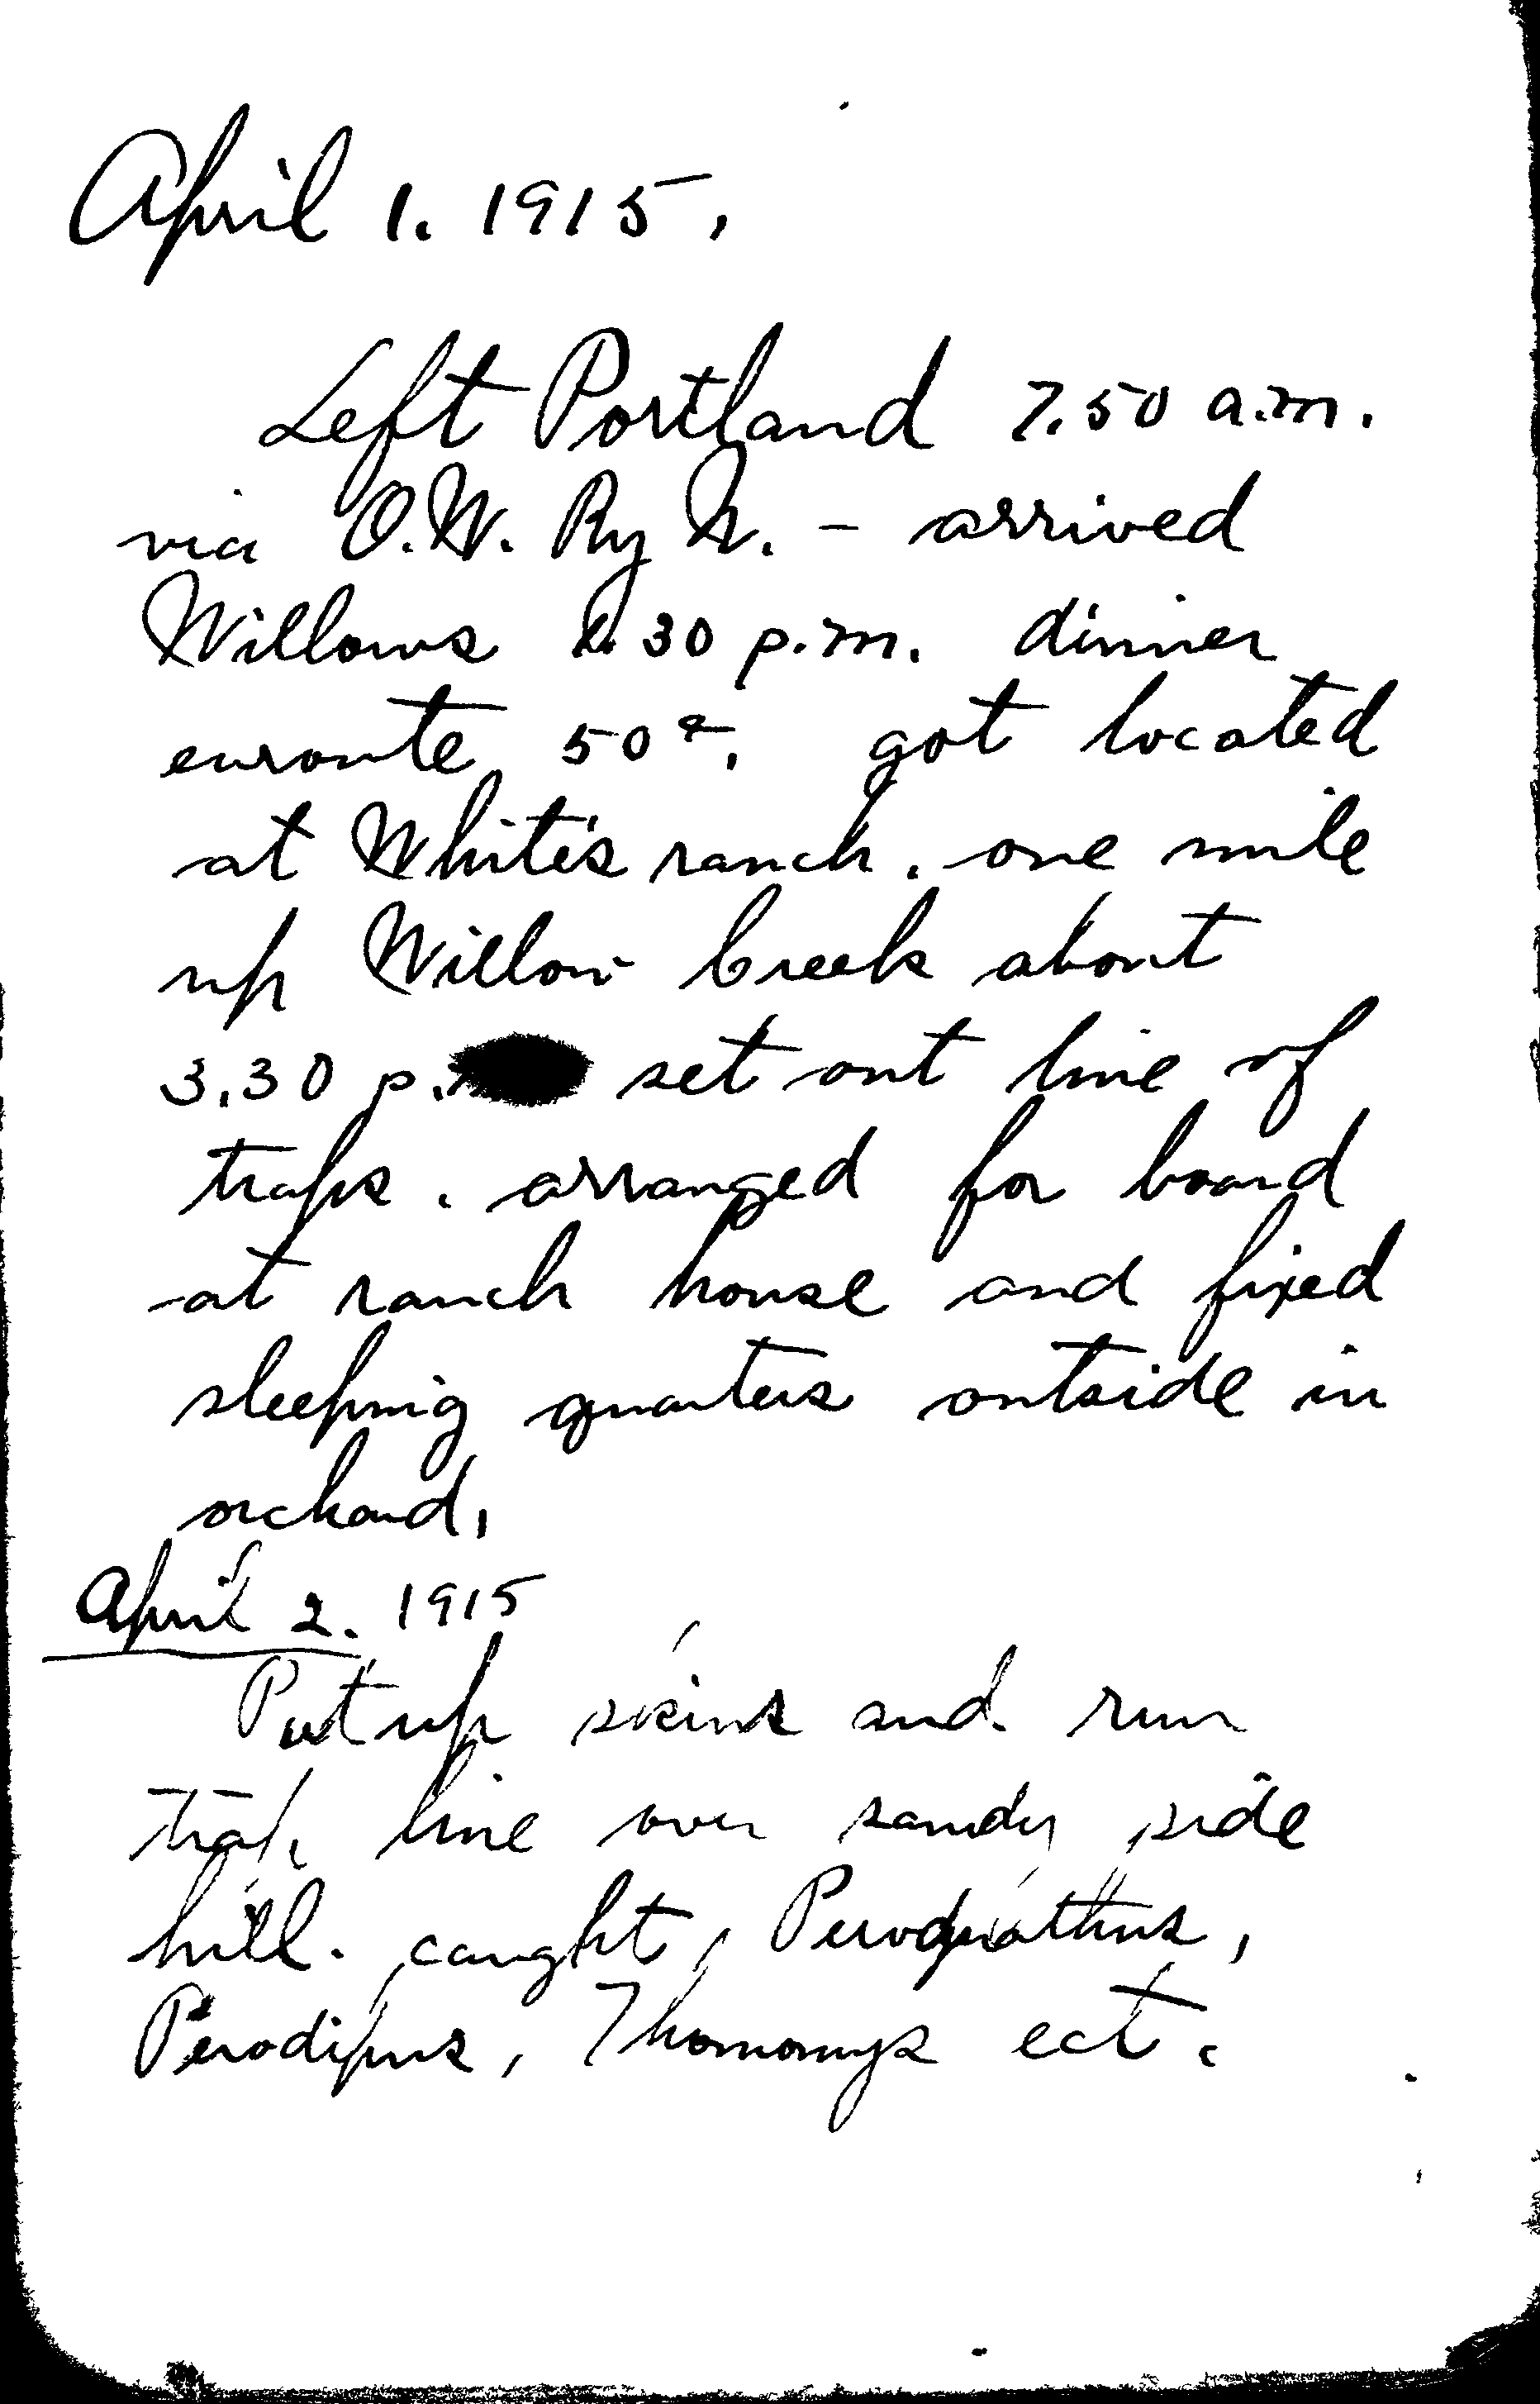 April 1. 1915.
Left Portland 7.50 a.m.
via O.W. Ry N. - arrived
Willows 30 p.m. dinner
enroute 50¢. got located
at White's ranch. one mile
up Willow Creek about
3.30 p. set out line of
traps. arranged for board
at ranch house and fixed
sleeping quarters outside in
orchard.
April 2. 1915
Put up skins and run
trap line over sandy side
hill. caught, Perognathus,
Perodipus, Thomomys ect.